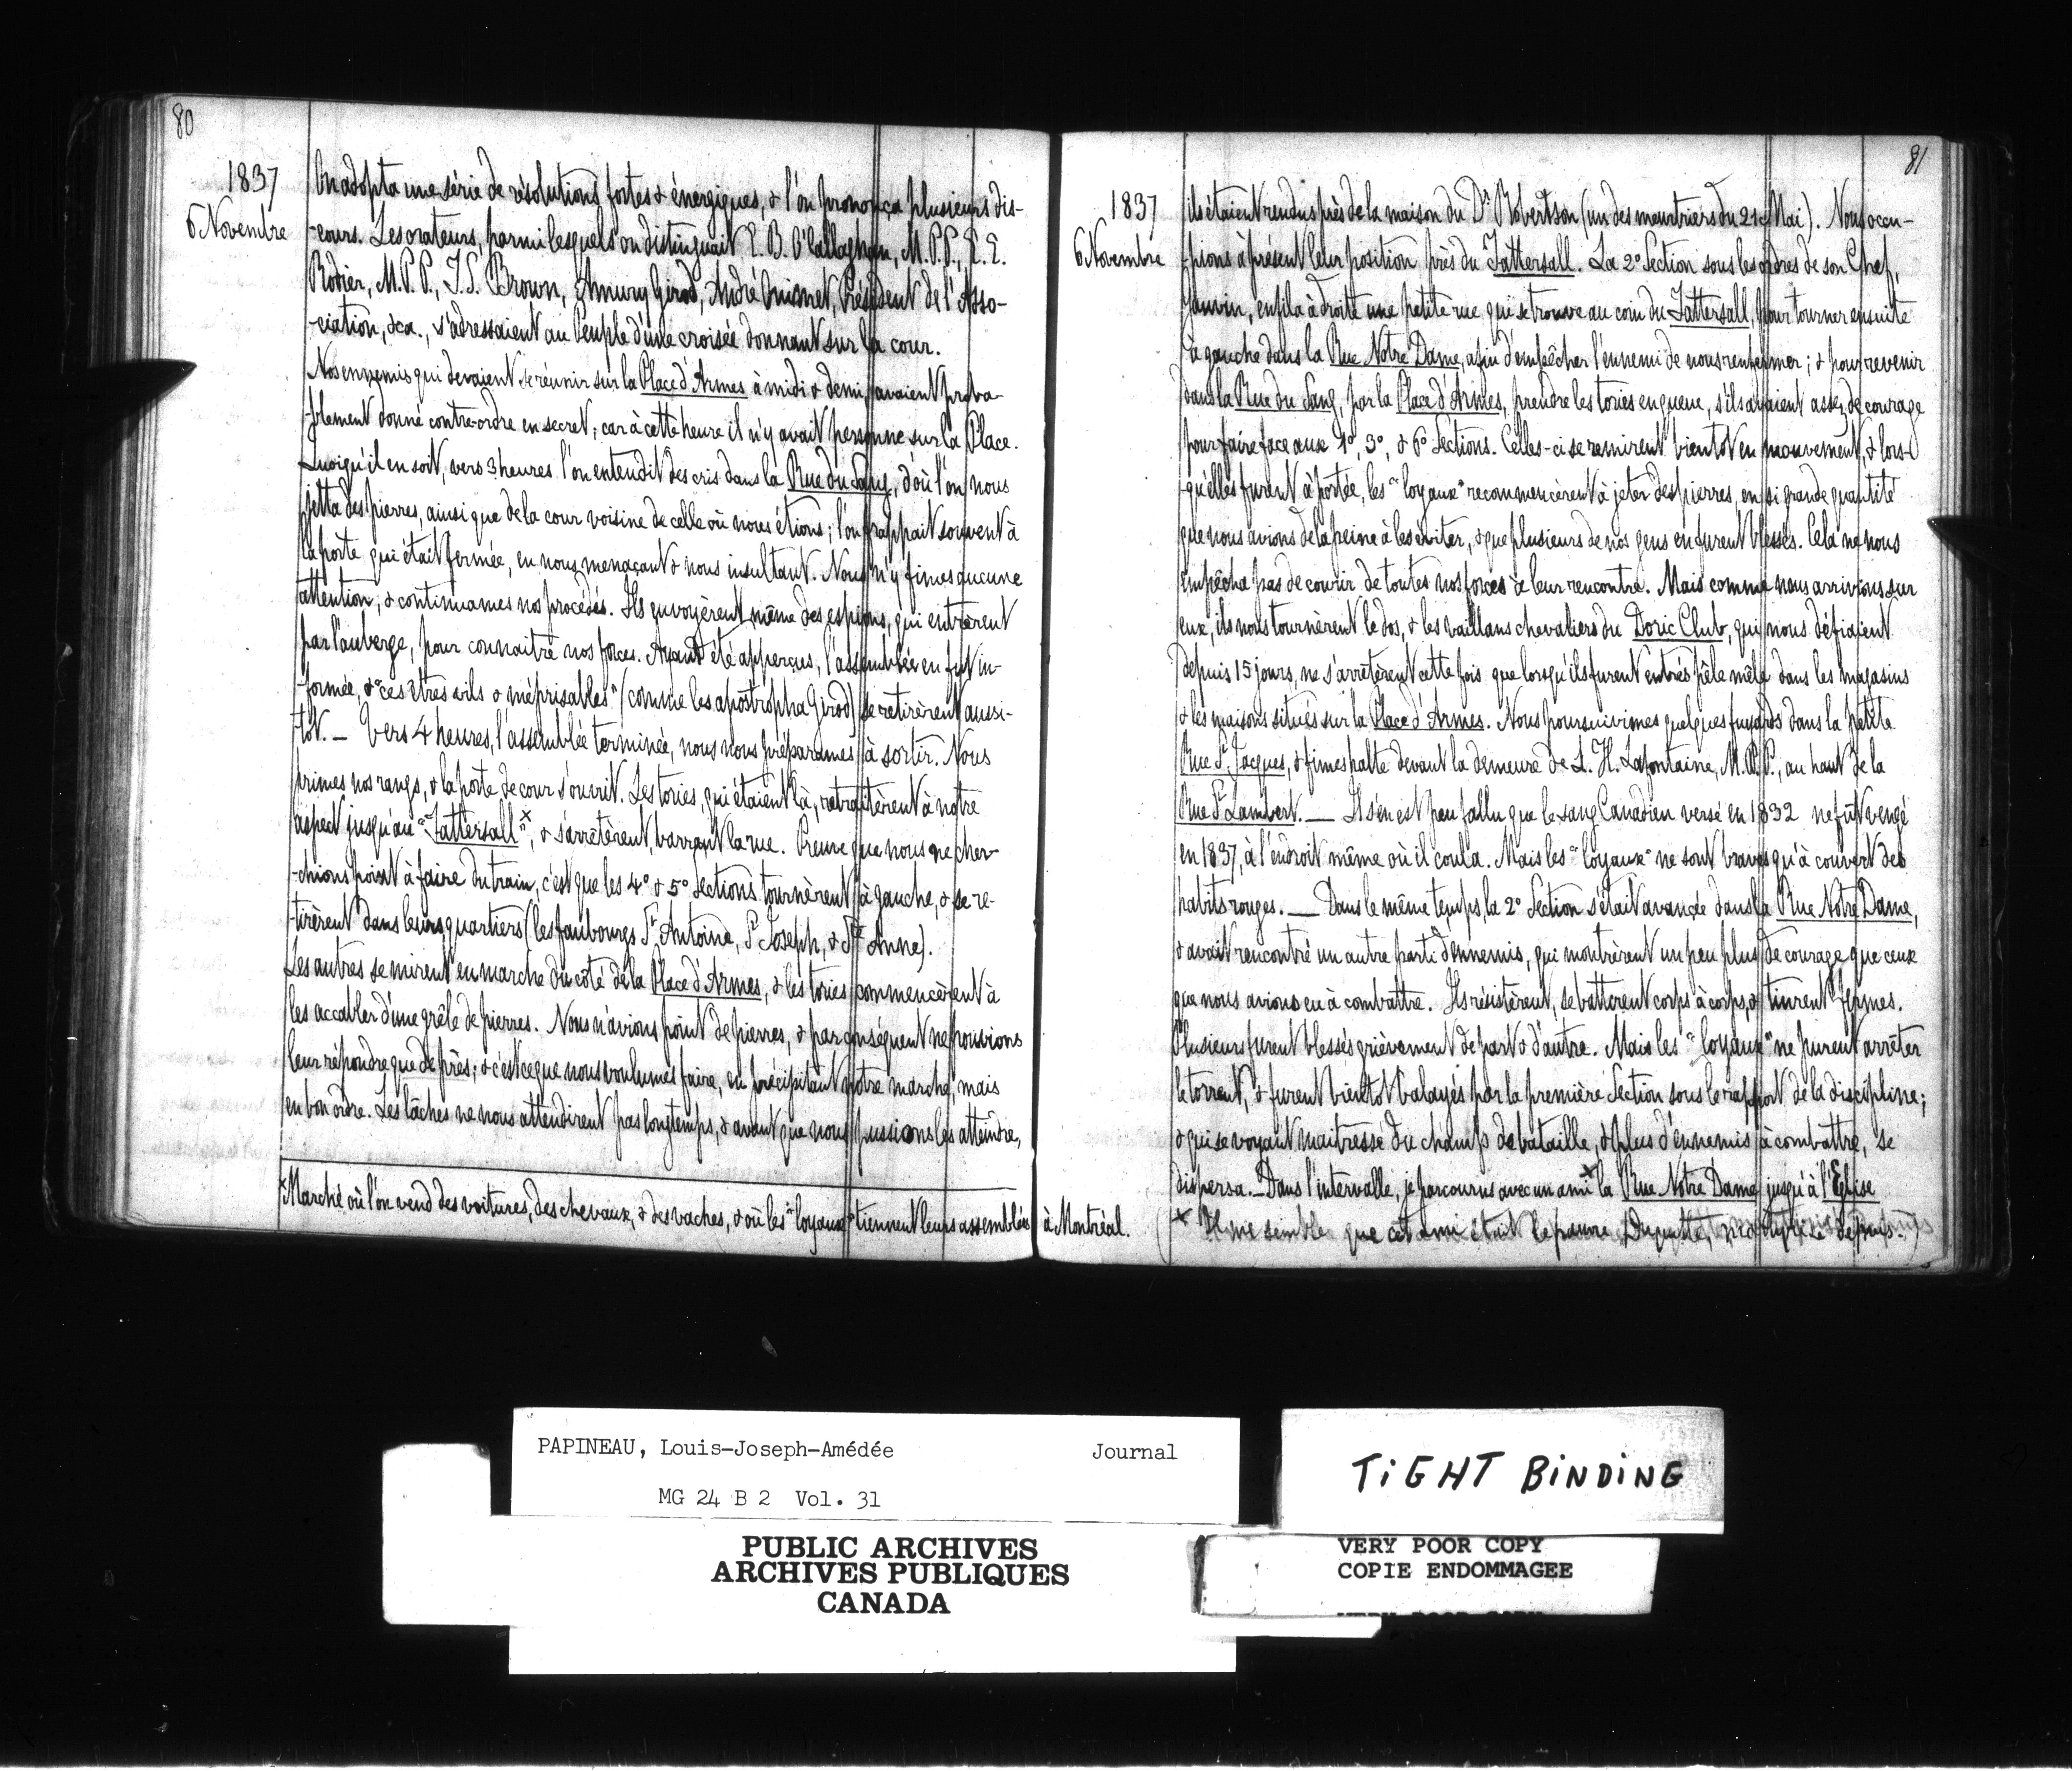 80
1837
6 Novembre
On adopta une série de résolutions fortes & énergiques, & l'on prononça plusieurs dis-
-cours. Les orateurs, parmi lesquels on distinguait E. B. O'Callaghan, M.P.P., E. E.
Rodier, M.P.P., T. S. Brown, Amury Girod, André Ouimet, Président de l'Asso-
-ciation, &ca., s'adressaient au Peuple d'une croisée donnant sur la cour.
Nos ennemis qui devaient se réunir sur la Place d'Armes à midi & demi, avaient proba-
-blement donné contre-ordre en secret; car à cette heure il n'y avait personne sur la Place.
Quoiqu'il en soit, vers 3 heures l'on entendit des cris dans la Rue du Sang, d'où l'on nous
jetta des pierres, ainsi que de la cour voisine de celle où nous étions; l'on frappait souvent à
la porte qui était fermée, en nous menaçant & nous insultant. Nous n'y fimes aucune
attention, & continuames nos procédés. Ils envoyèrent même des espions, qui entrèrent
par l'auberge, pour connaitre nos forces. Ayant été apperçus, l'assemblée en fut in-
-formée, & "ces êtres vils & méprisables" (comme les apostropha Girod) se retirèrent aussi-
-tôt. — Vers 4 heures, l'assemblée terminée, nous nous préparames à sortir. Nous
primes nos rangs, & la porte de cour s'ouvrit. Les tories, qui étaient là, retraitèrent à notre
aspect jusqu'au "Tattersall" x, & s'arrêtèrent, barrant la rue. Preuve que nous ne cher-
-chions point à faire du train, c'est que les 4e & 5e Sections tournèrent à gauche, & se re-
-tirèrent dans leurs quartiers (les faubourgs St Antoine, St Joseph, & Ste Anne).
Les autres se mirent en marche du côté de la Place d'Armes, & les tories commencèrent à
les accabler d'une grêle de pierres. Nous n'avions point de pierres, & par conséquent ne pouvions
leur répondre que de près; & c'est ce que nous voulumes faire, en précipitant notre marche, mais
en bon ordre. Les lâches ne nous attendirent pas longtemps, & avant que nous pussions les atteindre,
x Marché où l'on vend des voitures, des chevaux, & des vaches, & où les "loyaux" tiennent leurs assemblées à Montréal.
81
1837
6 Novembre
ils étaient rendus près de la maison du Dr Robertson (un des meurtriers du 21 Mai). Nous occu-
-pions à présent leur position près du Tattersall. La 2e Section sous les ordres de son Chef,
Jauvin, enfila à droite une petite rue qui se trouve au coin du Tattersall, pour tourner ensuite
à gauche dans la Rue Notre Dame, afin d'empêcher l'ennemi de nous renfermer; & pour revenir
dans la Rue du Sang, par la Place d'Armes, prendre les tories en queue, s'ils avaient assez de courage
pour faire face aux 1e, 3e, & 6e Sections. Celles-ci se remirent bientot en mouvement, & lors-
-qu'elles furent à portée, les "loyaux" recommencèrent à jeter des pierres, en si grande quantité
que nous avions de la peine à les éviter, & que plusieurs de nos gens en furent blessés. Cela ne nous
empêcha pas de courir de toutes nos forces à leur rencontre. Mais comme nous arrivions sur
eux, ils nous tournèrent le dos, & les vaillans chevaliers du Doric Club, qui nous défiaient
depuis 15 jours, ne s'arrêtèrent cette fois que lorsqu'ils furent entrés pêle mêle dans les magasins
& les maisons situés sur la Place d'Armes. Nous poursuivimes quelques fuyards dans la petite
Rue St Jacques, & fimes halte devant la demeure de L. H. Lafontaine, M.P.P., au haut de la
Rue St Lambert. — Il s'en est peu fallu que le sang Canadien versé en 1832 ne fût vengé
en 1837, à l'endroit même où il coula. Mais les "loyaux" ne sont braves qu'à couvert des
habits rouges. — Dans le même temps, la 2e Section s'était avancée dans la Rue Notre Dame,
& avait rencontré un autre parti d'ennemis, qui montrèrent un peu plus de courage que ceux
que nous avions eu à combattre. Ils résistèrent, se batterent corps à corps, & tinrent fermes.
Plusieurs furent blessés grièvement de part & d'autre. Mais les "loyaux" ne purent arrêter
le torrent, & furent bientot balayés par la première Section sous le rapport de la discipline;
& qui se voyant maitresse du champs de bataille, & plus d'ennemis à combattre, se
dispersa. — Dans l'intervalle, je parcourus avec un ami x la Rue Notre Dame jusqu'à l'Eglise
(x Il me semble que cet ami était le pauvre Duquette, martyrisé depuis.)
PAPINEAU, Louis-Joseph-Amédée Journal
MG 24 B 2 Vol. 31
PUBLIC ARCHIVES
ARCHIVES PUBLIQUES
CANADA
TIGHT BINDING
VERY POOR COPY
COPIE ENDOMMAGEE
VERY POOR COPY